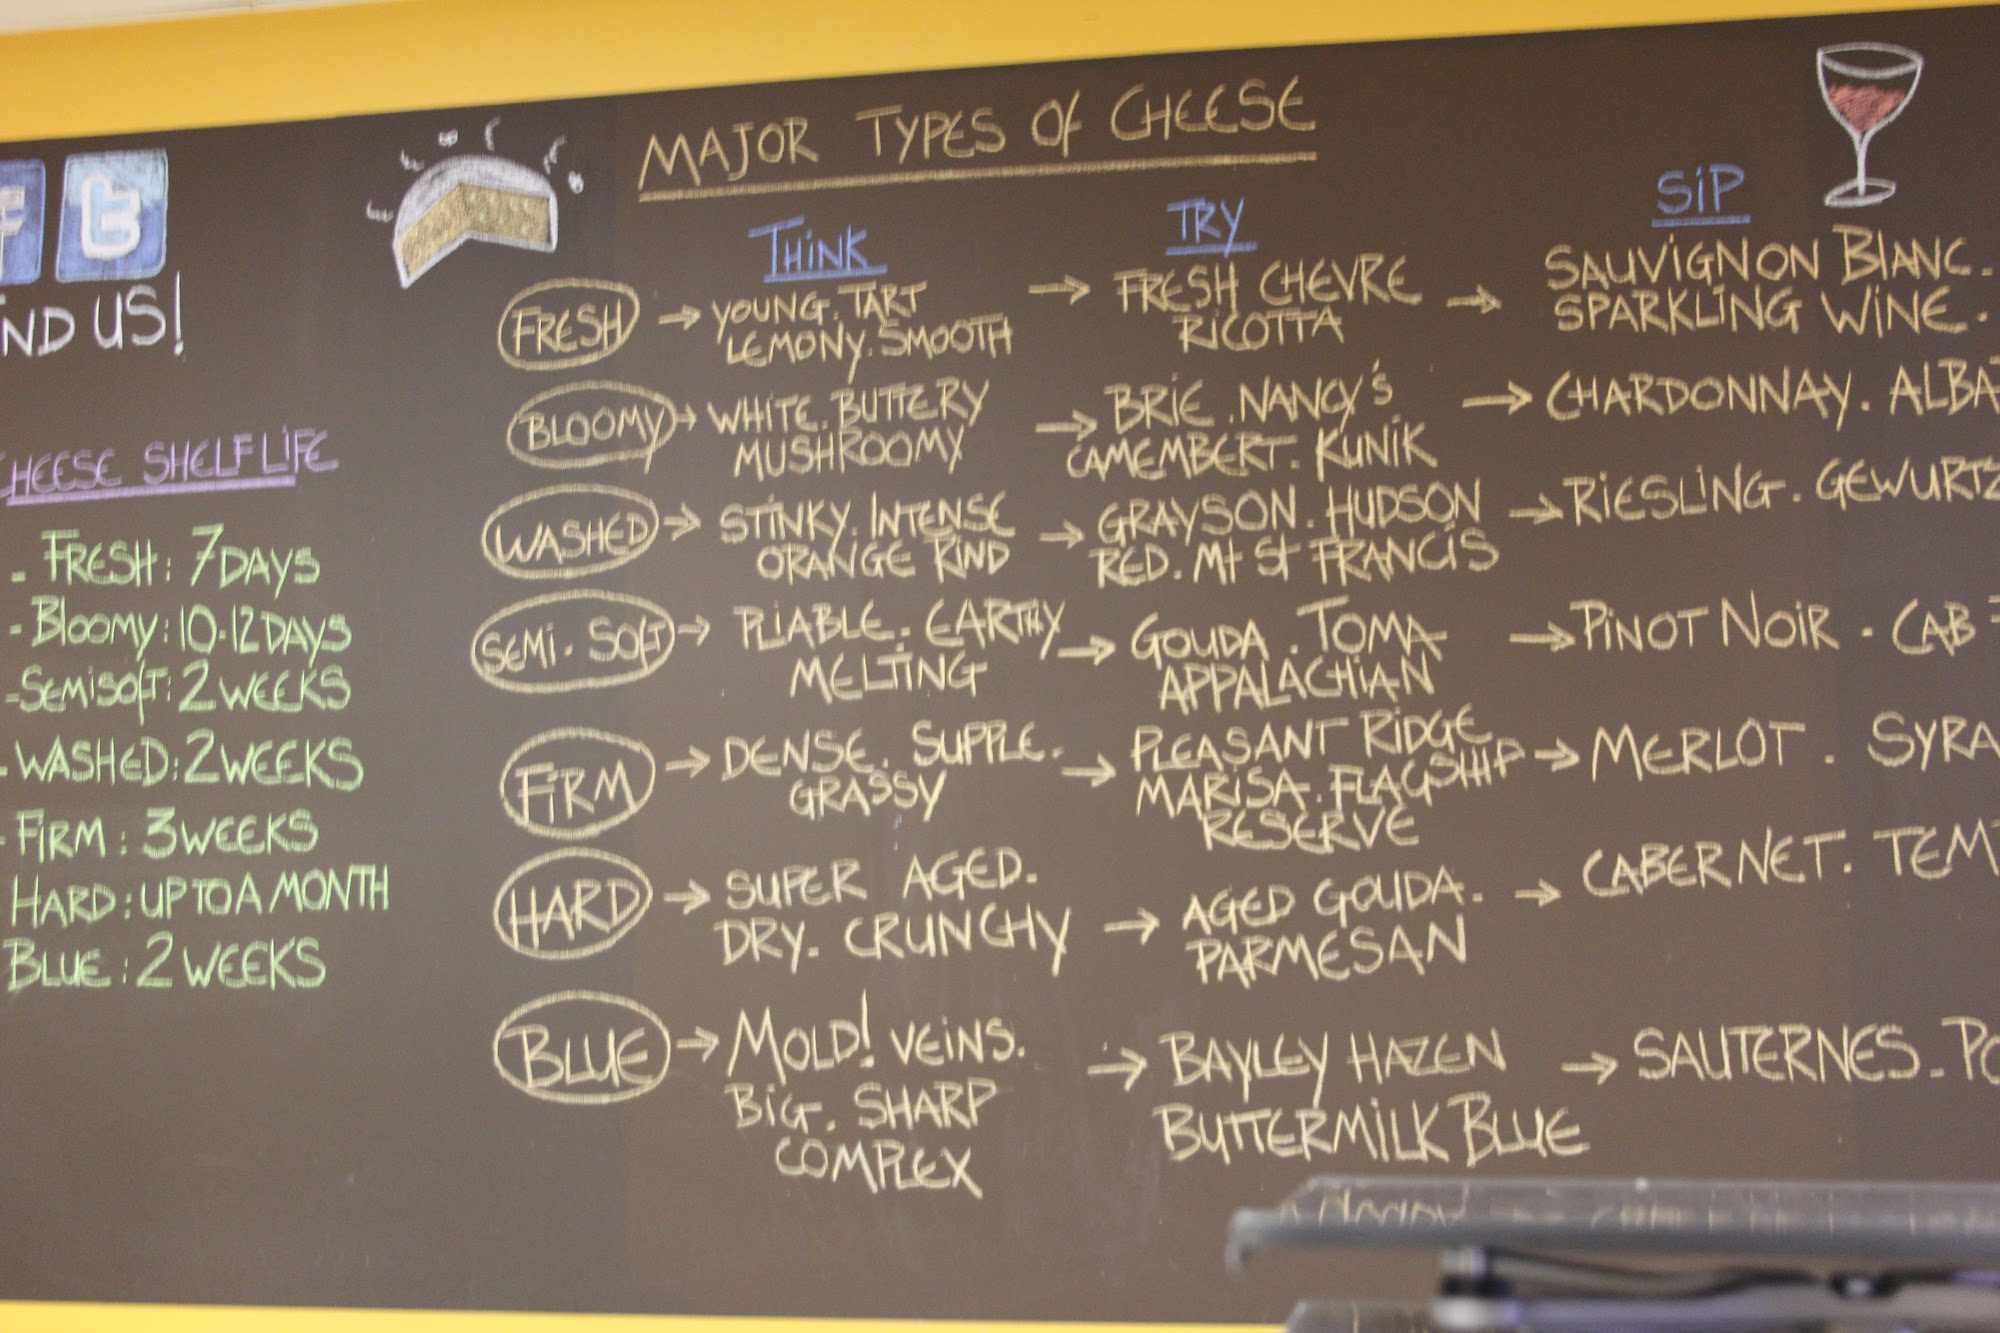 MAJOR TYPES OF CHEESE
THINK
TRY
SIP
FRESH → YOUNG. TART → FRESH CHEVRE → SAUVIGNON BLANC.
LEMONY. SMOOTH RICOTTA SPARKLING WINE.
BLOOMY → WHITE. BUTTERY → BRIE. NANCY'S → CHARDONNAY.
MUSHROOMY CAMEMBERT. KUNIK
WASHED → STINKY. INTENSE → GRAYSON. HUDSON → RIESLING.
ORANGE RIND RED. Mt St FRANCIS
SEMI. SOFT → PLIABLE. EARTHY → GOUDA. TOMA → PINOT NOIR. CAB
MELTING APPALACHIAN
FIRM → DENSE. SUPPLE. → PLEASANT RIDGE → MERLOT.
GRASSY MARISA. FLAGSHIP
RESERVE
HARD → SUPER AGED. → AGED GOUDA. → CABERNET.
DRY. CRUNCHY PARMESAN
BLUE → MOLD! VEINS. → BAYLEY HAZEN → SAUTERNES.
BIG. SHARP BUTTERMILK BLUE
COMPLEX
f t
ND US!
CHEESE SHELF LIFE
- FRESH: 7 DAYS
- BLOOMY: 10-12 DAYS
- SEMISOFT: 2 WEEKS
- WASHED: 2 WEEKS
- FIRM: 3 WEEKS
HARD: UP TO A MONTH
BLUE: 2 WEEKS